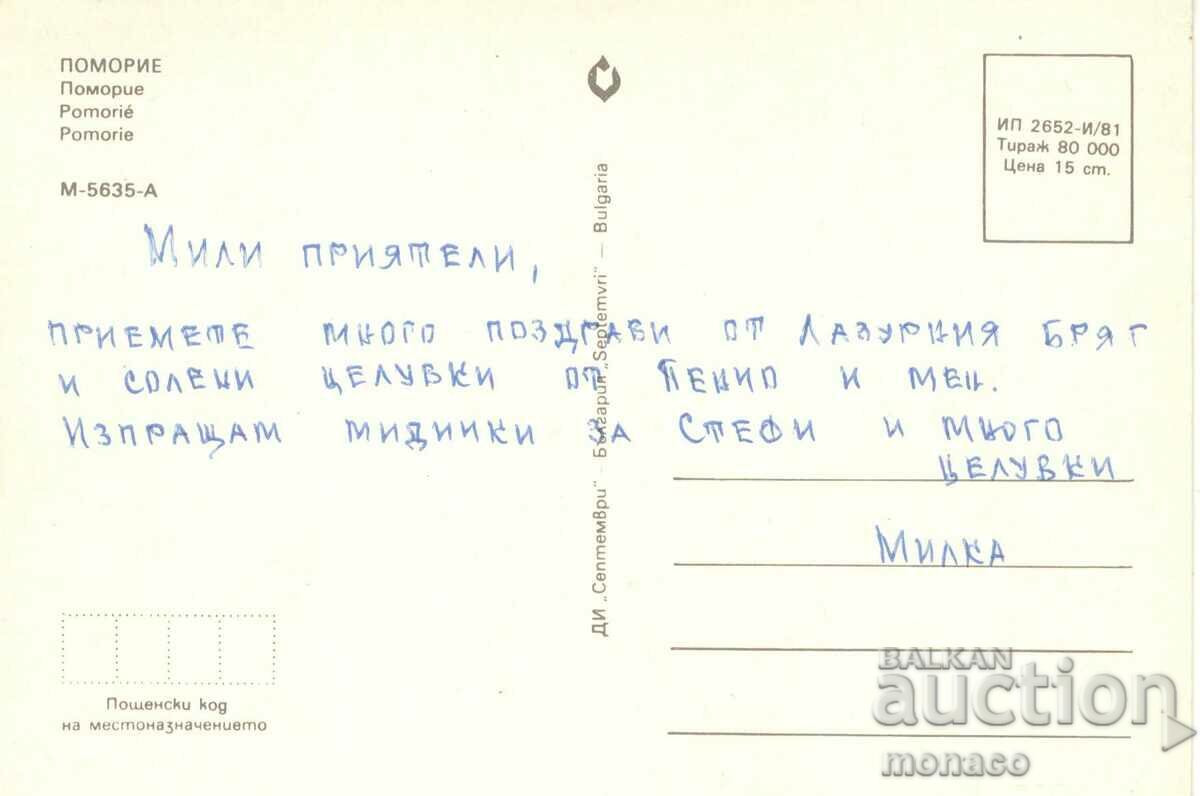 ПОМОРИЕ
Поморие
Pomorié
Pomorie
М-5635-А
ИП 2652-И/81
Тираж 80 000
Цена 15 ст.
Мили приятели,
приемете много поздрави от Лазурния бряг
и солени целувки от Пенио и мен.
Изпращам мидички за Стефи и много
целувки
Милка
ДИ „Септември" – България „Septemvri" – Bulgaria
Пощенски код
на местоназначението
BALKAN
auction
monaco